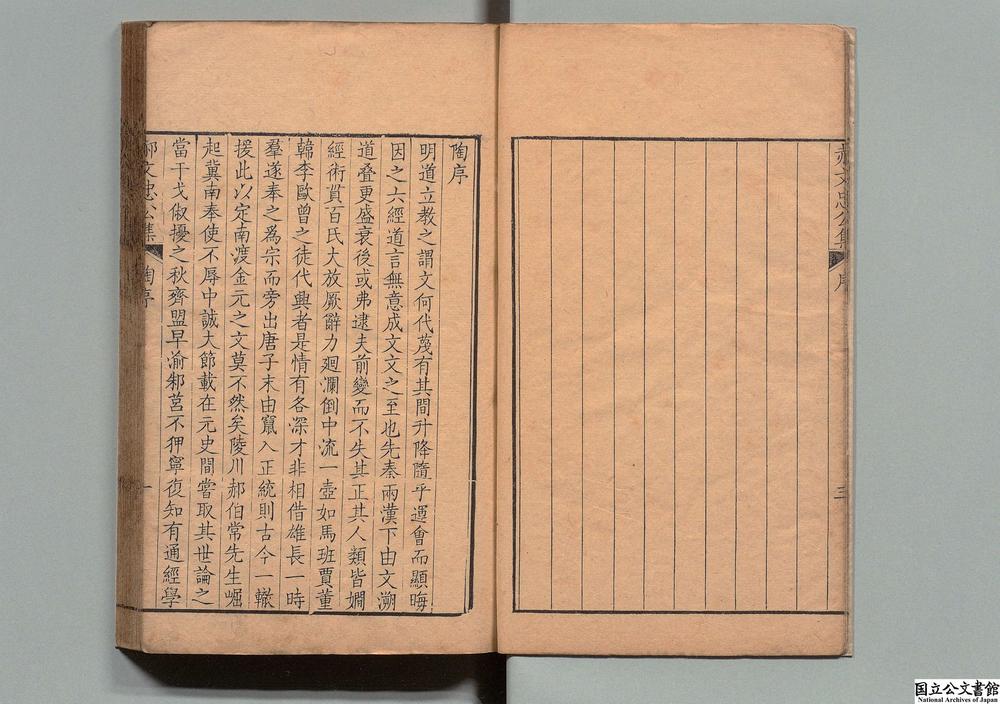 郝文忠公集
序
三
陶序
明道立教之謂文何代蔑有其間升降隨乎運會而顯晦
因之六經道言無意成文文之至也先秦兩漢下由文溯
道疊更盛衰後或弗逮夫前變而不失其正其人類皆嫺
經術貫百氏大放厥辭力廻瀾倒中流一壺如馬班賈董
韓李歐曾之徒代興者是情有各深才非相借雄長一時
羣遂奉之為宗而旁出唐子末由竄入正統則古今一轍
援此以定南渡金元之文莫不然矣陵川郝伯常先生崛
起冀南奉使不辱中誠大節載在元史間嘗取其世論之
當干戈俶擾之秋齊盟早渝邾莒不狎寧復知有通經學
郝文忠公集
陶序
一
国立公文書館
National Archives of Japan